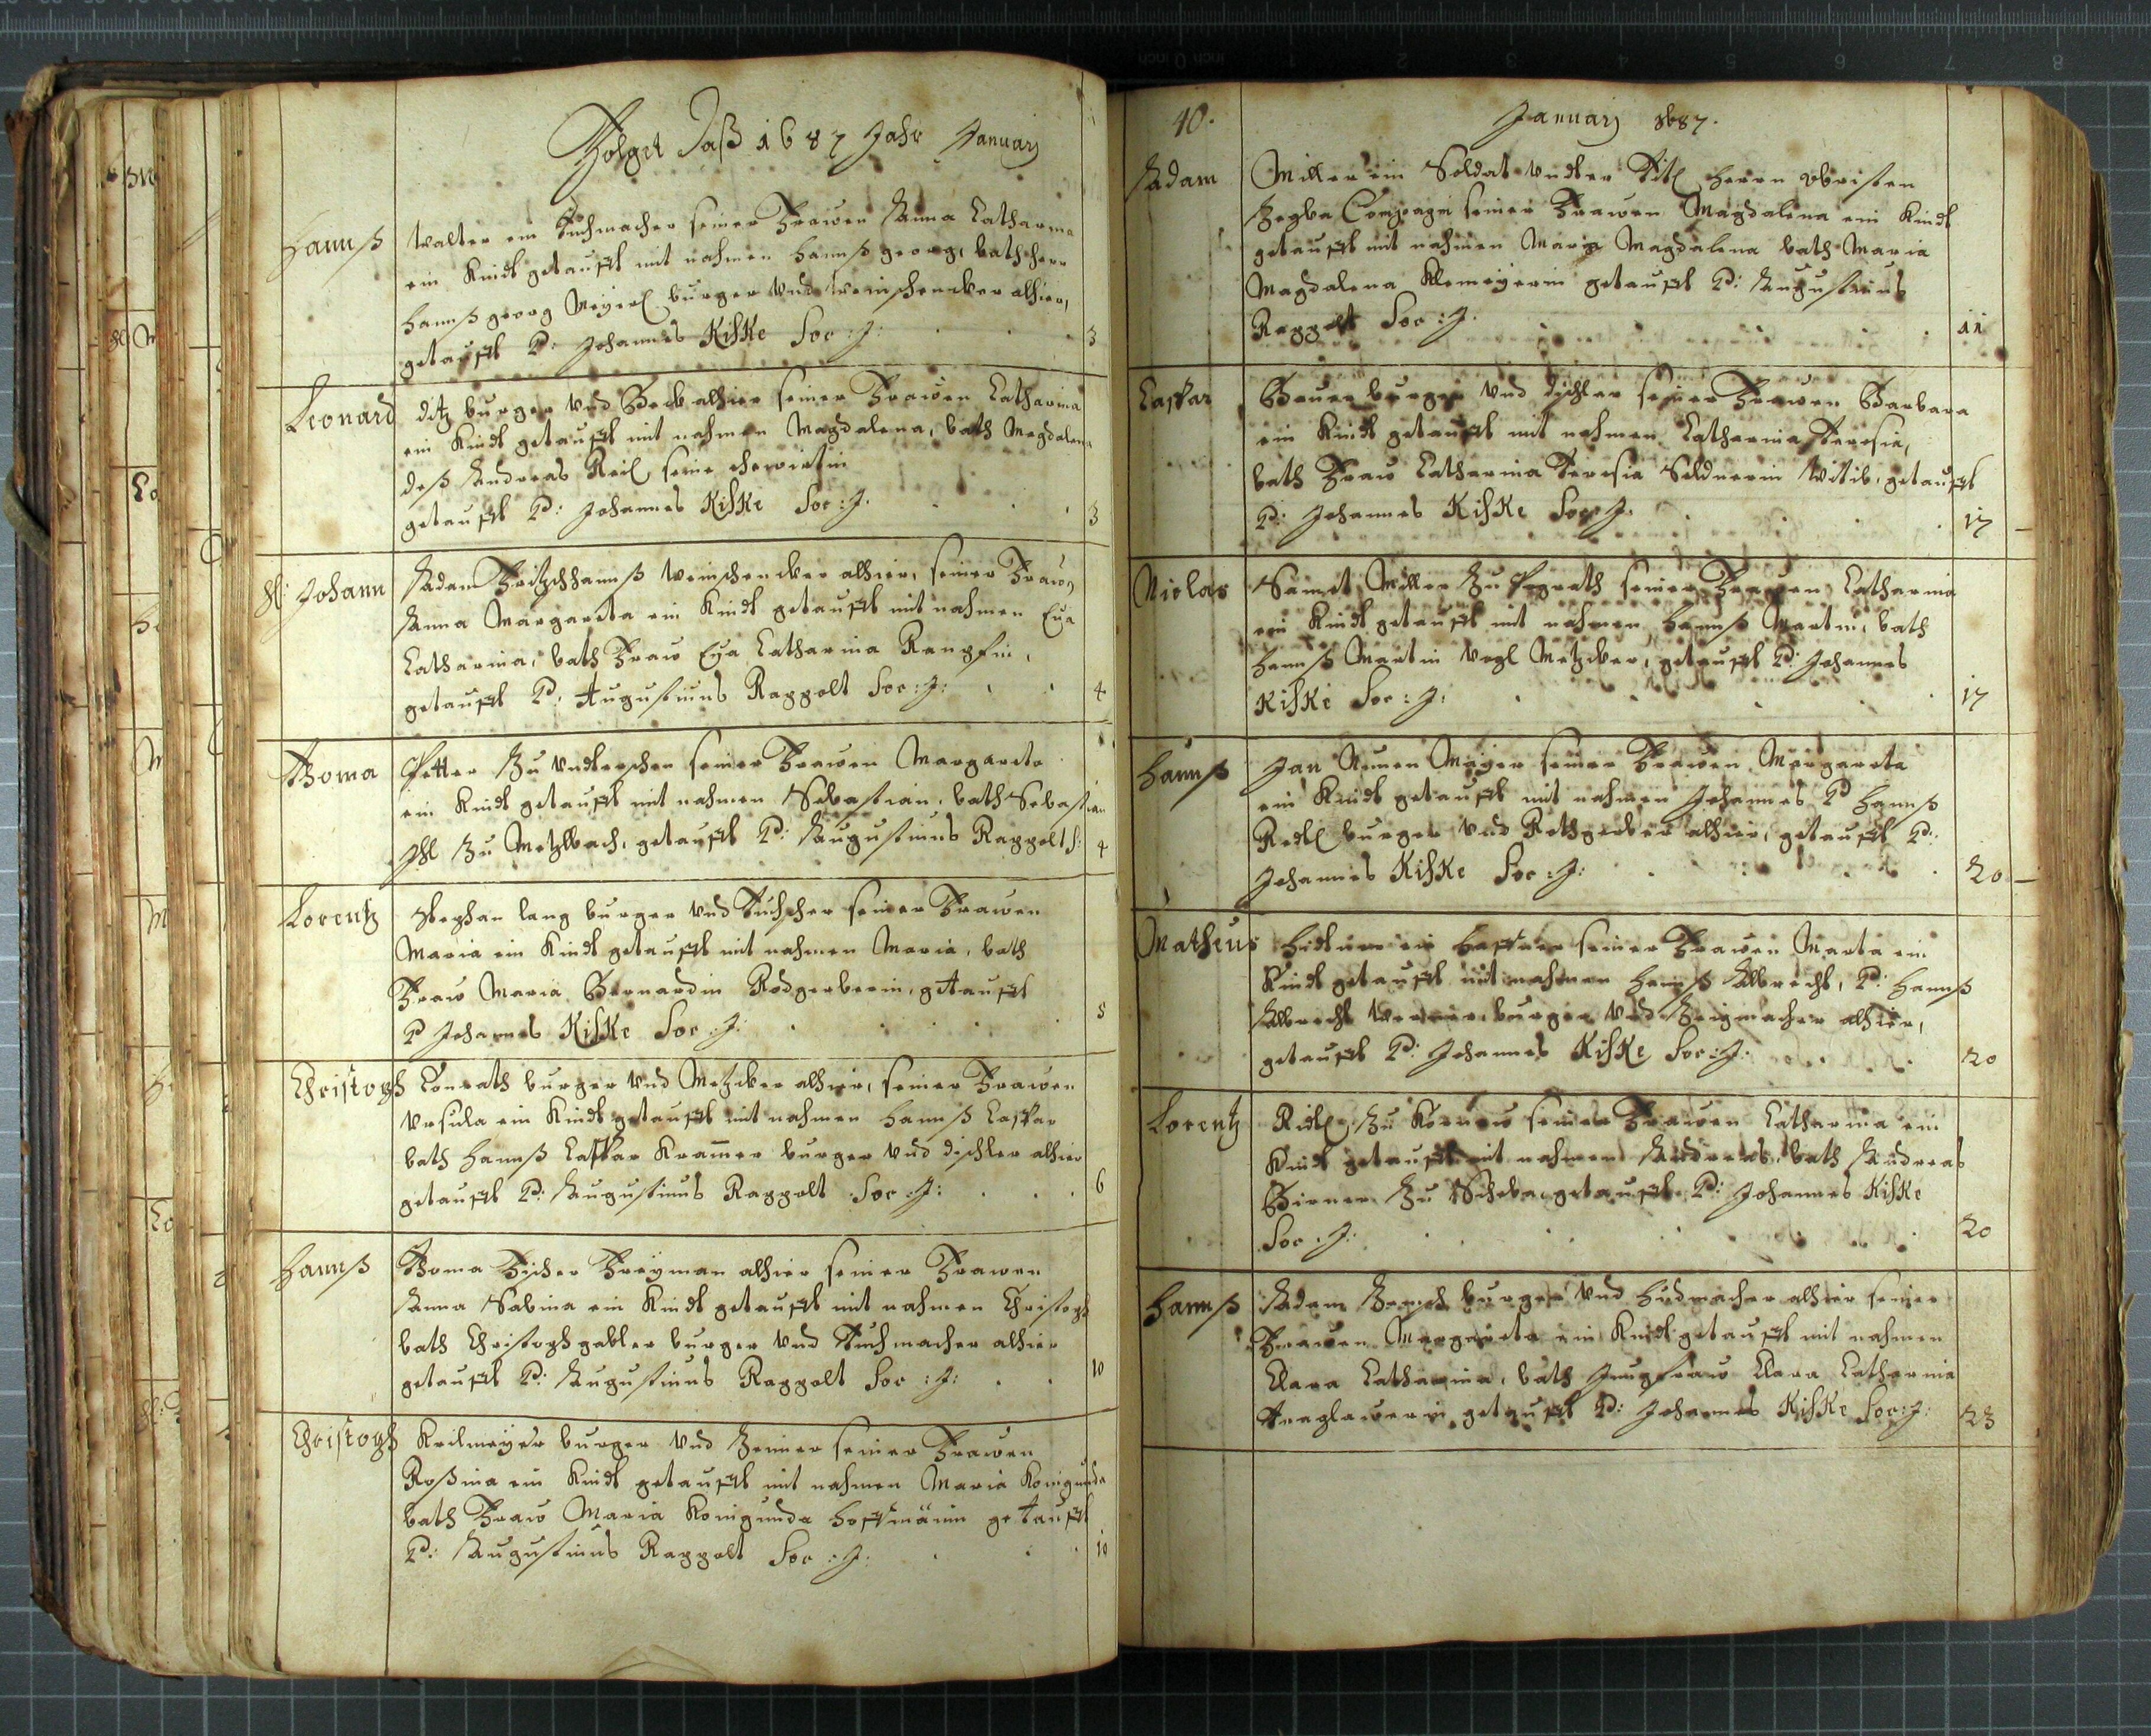 Folget Daß 1687 Jahr Januarj
Hannß
Walter ein Tuchmacher seiner Frawen Anna Catharina
ein Kindt getaufft mit nahmen Hannß georg, bath herr
Hannß georg Meyerl burger Vnd Weinschencker alhier,
getaufft P: Johannes KisKe Soc: J: 3
Leonard
ditz burger Vnd Beck alhier seiner Frawen Catharina
ein Kindt getaufft mit nahmen Magdalena, bath Magdalena
deß Andreas Reil seine ehewirtin
getaufft P: Johannes KisKe Soc: J. 3
H: Johann
Adam Fritzhhannß Weinschencker alhier, seiner Frawen
Anna Margareta ein Kindt getaufft mit nahmen Eua
Catharina, bath Fraw Eua Catharina
getaufft P: Augustinus Rappolt Soc: J: 4
Thoma
Petter Zu seiner Frawen Margareta
ein Kindt getaufft mit nahmen Sebastian, bath Sebastian
Zu Metzlbach, getaufft P: Augustinus Rappolt S: 4
Lorentz
Stephan lang burger Vnd seiner Frawen
Maria ein Kindt getaufft mit nahmen Maria, bath
Fraw Maria Bernardin Rodgerberin, getaufft
P Johannes KisKe Soc: J: 5
Christoph
Conrath burger Vnd Metzcker alhier, seiner Frawen
Vrsula ein Kindt getaufft mit nahmen Hannß Caspar
bath Hannß Caspar Kram̄er burger Vnd dischler alhier
getaufft P: Augustinus Rappolt Soc: J: 6
Hannß
Thoma Fischer Freyman alhier seiner Frawen
Anna Sabina ein Kindt getaufft mit nahmen Christoph
bath Christoph gabler burger Vnd Tuchmacher alhier
getaufft P: Augustinus Rappolt Soc: J: 10
Christoph
Keilmeyer burger Vnd seiner Frawen
Roßina ein Kindt getaufft mit nahmen Maria Konigunda
bath Fraw Maria Konigunda Hoffmänin getaufft
P: Augustinus Rappolt Soc: J: 10
40. Januarj 1687.
Adam
Miller ein Soldat Vndter Titl Herrn obristen
Compagni seiner Frawen Magdalena ein Kindt
getaufft mit nahmen Maria Magdalena bath Maria
Magdalena Klemeyerin getaufft P: Augustinus
Rappolt Soc: J. 11
Caspar
burger Vnd dischler seiner Frawen Barbara
ein Kindt getaufft mit nahmen Catharina Teresia,
bath Fraw Catharina Teresia Soldnerin Witib, getaufft
P: Johannes KisKe Soc: J: 17
Niclas
Miller Zu seiner Frawen Catharina
ein Kindt getaufft mit nahmen Hannß Martin, bath
Hannß Martin Vogl Metzcker, getaufft P: Johannes
KisKe Soc: J: 17
Hannß
Mayer seiner Frawen Margareta
ein Kindt getaufft mit nahmen Johannes P Hannß
Redl burger Vnd Rothgerber alhier, getaufft P:
Johannes KisKe Soc: J: 20
Matheus
ein Haffner seiner Frawen Marta ein
Kindt getaufft mit nahmen Hannß Albrecht, P: Hannß
Albrecht Werner burger Vnd Zeigmacher alhier,
getaufft P: Johannes KisKe Soc: J: 20
Lorentz
Ridl Zu seiner Frawen Catharina ein
Kindt getaufft mit nahmen Andreas, bath Andreas
Birner Zu getaufft P: Johannes KisKe
Soc: J: 20
Hannß
Adam burger Vnd Hudmacher alhier seiner
Frawen Margareta ein Kindt getaufft mit nahmen
Clara Catharina, bath Jungfraw Clara Catharina
getaufft P: Johannes KisKe Soc: J: 23